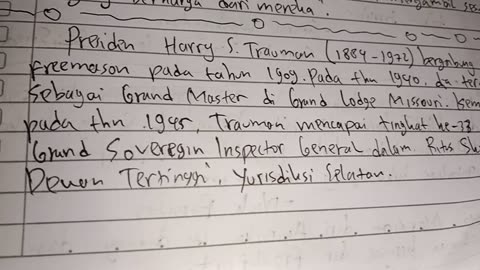 berharga dari mereka".
Presiden Harry S. Trauman (1884-1972) bergabung
Freemason pada tahun 1909. Pada thn 1940. da ter
Sebagai Grand Master di Grand Lodge Missouri. Kem
pada thn 1945, Trauman mencapai tingkat ke-33
Grand Soveregin Inspector General dalam Ritus Sk
Dewan Tertinggi, Yurisdiksi Selatan.